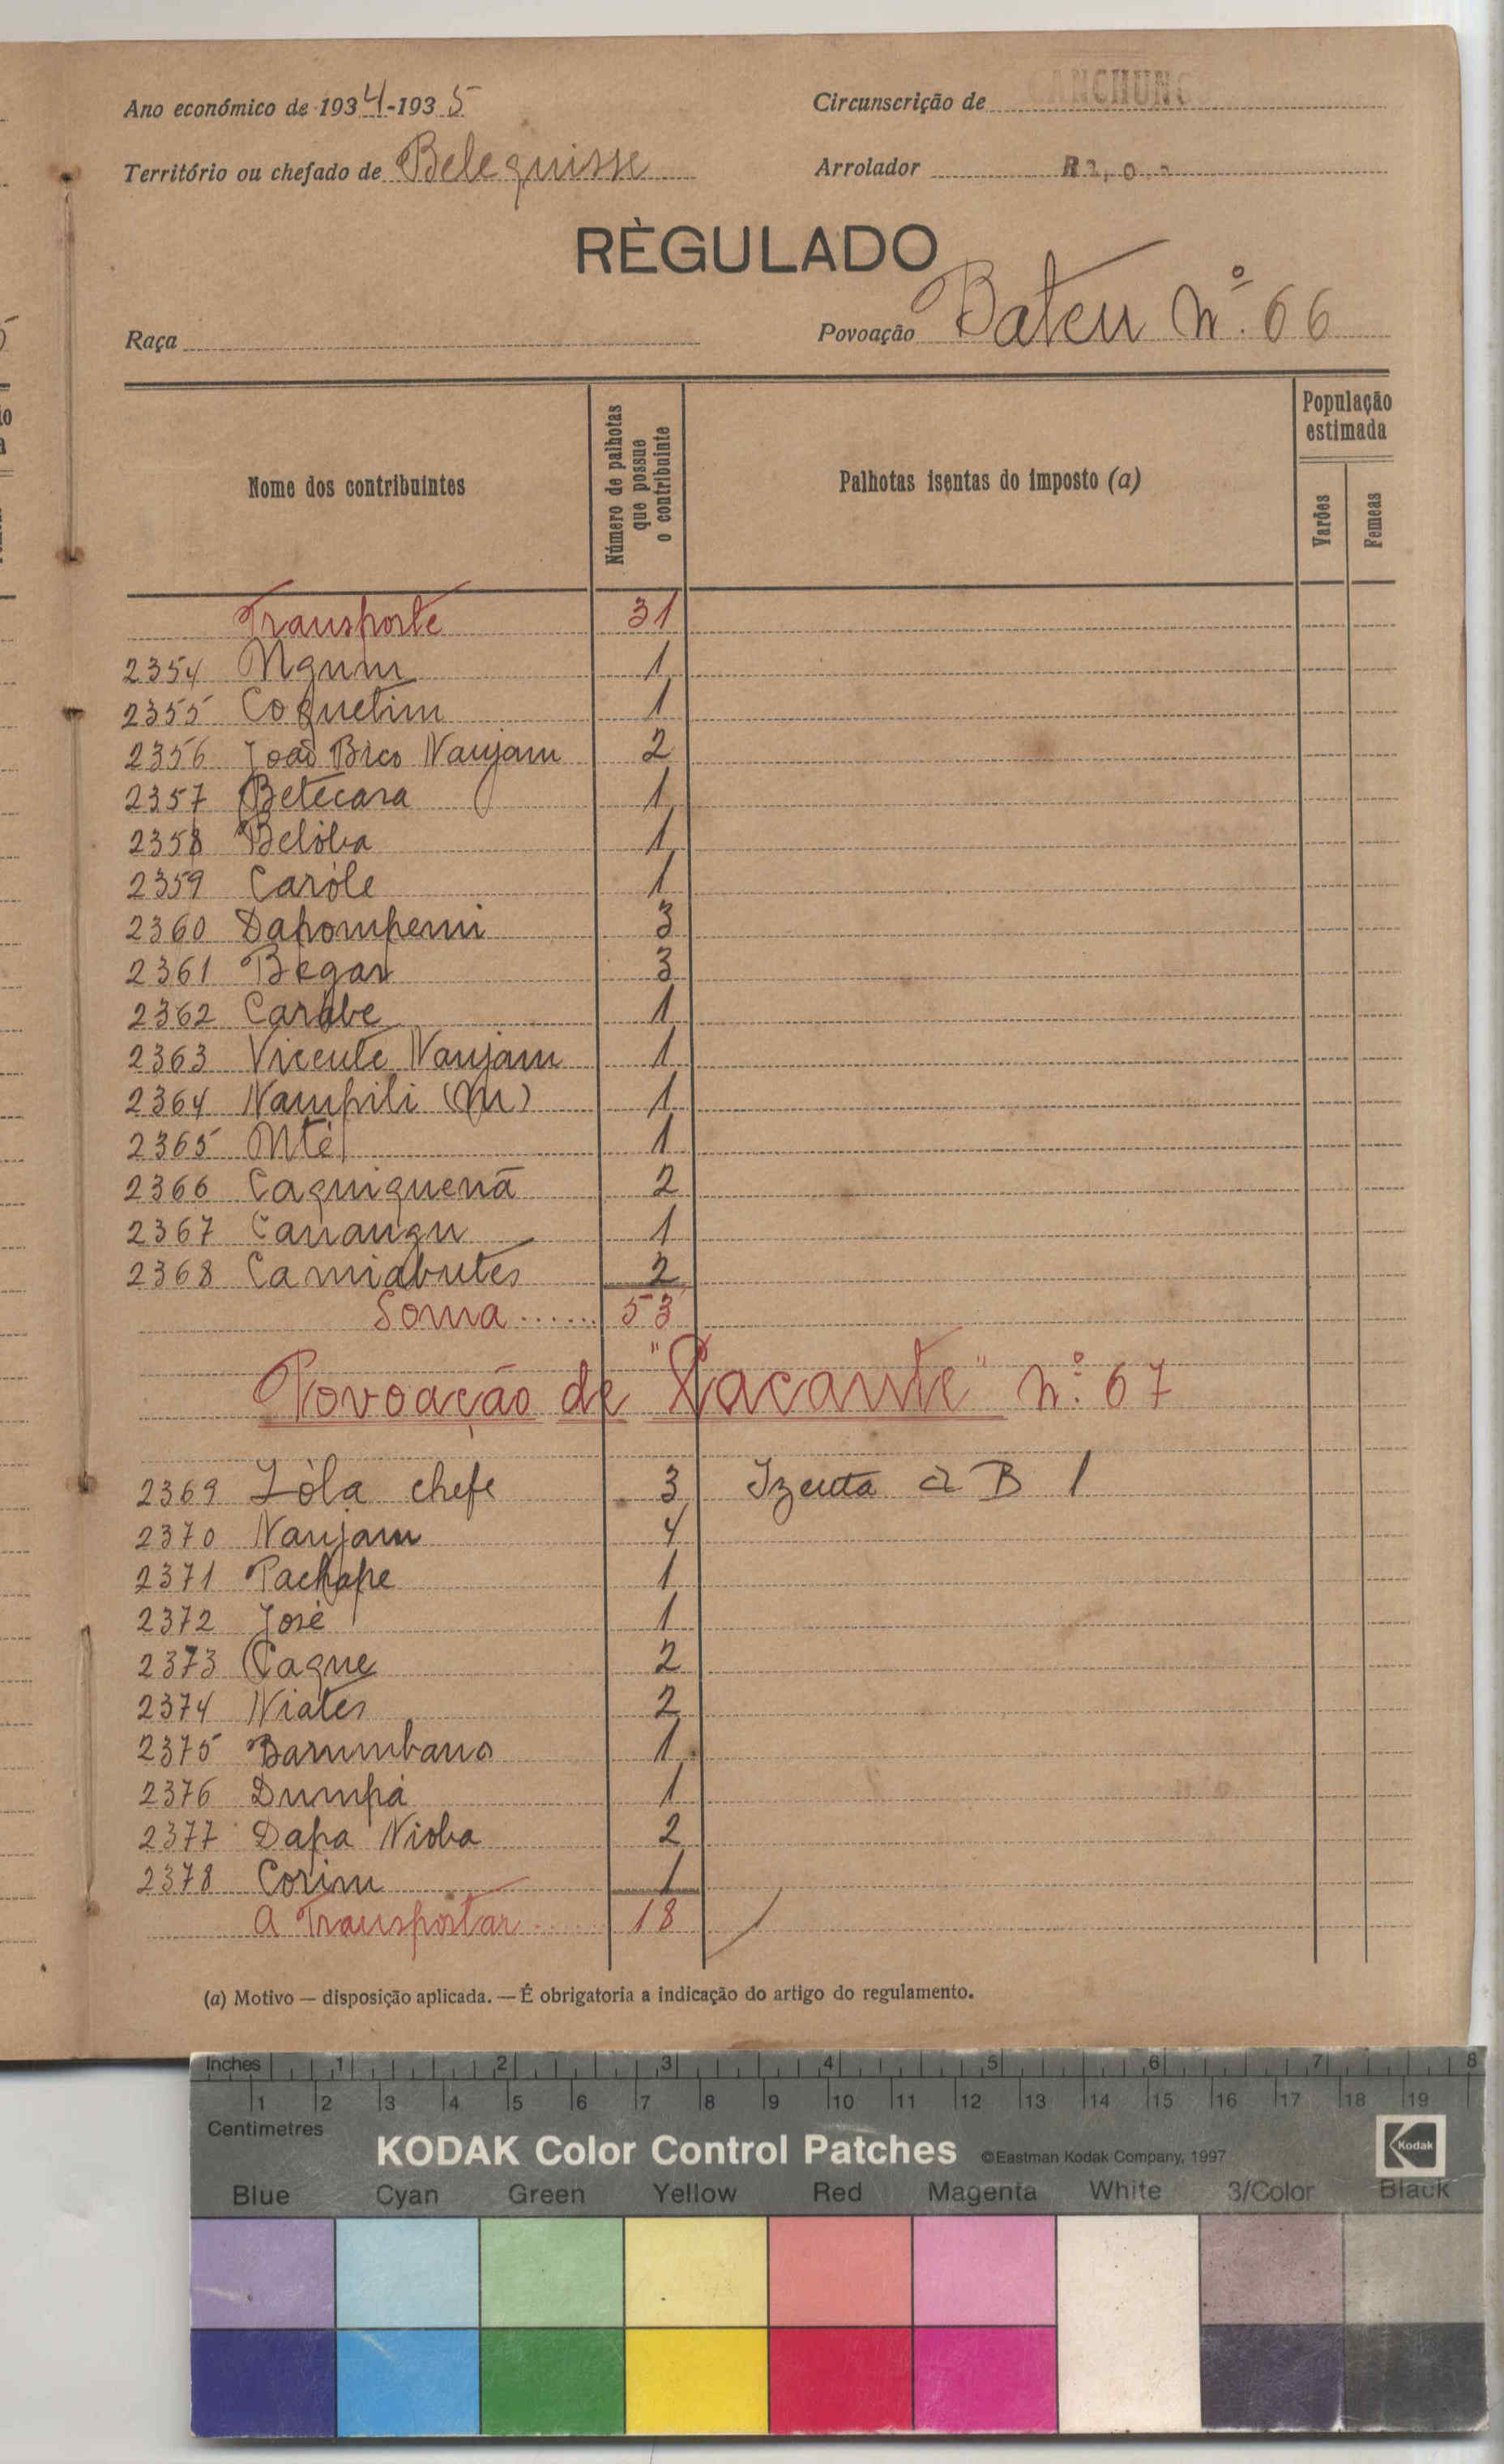 Ano económico de 1934-1935
Circunscrição de CANCHUNGO
Território ou chefado de Belequisse
Arrolador
RÈGULADO
Raça
Povoação Bateu nº. 66
Nome dos contribuintes
Número de palhotas que possue o contribuinte
Palhotas isentas do imposto (a)
População estimada
Varões
Femeas
Transporte 31
2354 Ngum 1
2355 Coquetim 1
2356 João Bico Naujam 2
2357 Betecara 1
2358 Belóba 1
2359 Caróle 1
2360 Dapompemi 3
2361 Begar 3
2362 Carabe 1
2363 Vicente Naujam 1
2364 Nampili (M) 1
2365 Nté 1
2366 Caquiquenã 2
2367 Canangu 1
2368 Camiabutes 2
Soma ...... 53
Povoação de "Pacante" nº. 67
2369 Lóla chefe 3 Izenta a B 1
2370 Naujam 4
2371 Pachape 1
2372 José 1
2373 Caque 2
2374 Niates 2
2375 Barumbano 1
2376 Dumpá 1
2377 Dapa Nioba 2
2378 Corim 1
A Transportar ..... 18
(a) Motivo — disposição aplicada. — É obrigatoria a indicação do artigo do regulamento.
Inches 1 2 3 4 5 6 7 8
1 2 3 4 5 6 7 8 9 10 11 12 13 14 15 16 17 18 19
Centimetres
KODAK Color Control Patches ©Eastman Kodak Company, 1997 Kodak
Blue Cyan Green Yellow Red Magenta White 3/Color Black